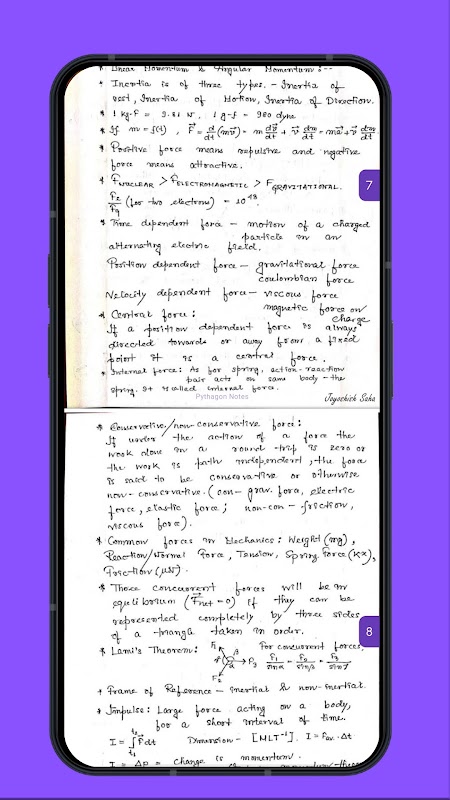 * Linear Momentum & Angular Momentum :--
* Inertia is of three types. - Inertia of
rest, Inertia of Motion, Inertia of Direction.
* 1 kg-f = 9.81 N. 1 g-f = 980 dyne
* If m = f(t) , F⃗ = d/dt (mv⃗) = m dv⃗/dt + v⃗ dm/dt = ma⃗ + v⃗ dm/dt
* Positive force means repulsive and negative
force means attractive.
* FNUCLEAR > FELECTROMAGNETIC > FGRAVITATIONAL.
(for two electrons) = 10^43.
7
* Time dependent force - motion of a charged
particle in an
alternating electric field.
Position dependent force - gravitational force
coulombian force
Velocity dependent force - viscous force
magnetic force on
charge
* Central force:
If a position dependent force is always
directed towards or away from a fixed
point it is a central force.
* Internal force: As for spring, action-reaction
pair acts on same body - the
spring. It is called internal force.
Pythagon Notes
Joyoshish Saha
* Conservative/non-conservative force:
If under the action of a force the
work done in a round-trip is zero or
the work is path independent, the force
is said to be conservative or otherwise
non-conservative. (con- grav. force, electric
force, elastic force; non-con - friction,
viscous force).
* Common forces in Mechanics: Weight (mg),
Reaction/Normal force, Tension, Spring force (Kx),
Friction (μN).
* Three concurrent forces will be in
equilibrium (F⃗net = 0) if they can be
represented completely by three sides
of a triangle taken in order.
8
* Lami's Theorem: F1 β γ α F3 F2 For concurrent forces,
F1/sinα = F2/sinβ = F3/sinγ
* Frame of Reference - inertial & non-inertial.
* Impulse: Large force acting on a body,
for a short interval of time.
I = ∫t1t2 F⃗ dt Dimension - [MLT⁻¹]. I = Fav · Δt
I = ΔP = change is momentum.